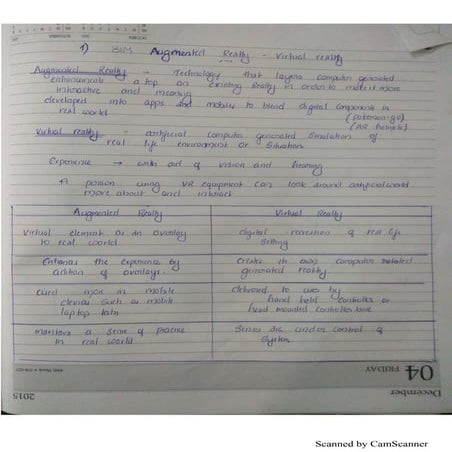 1) Augmented Reality - Virtual reality
Augmented Reality - Technology that layers computer generated
enhancements a top an existing Reality in order to make it more
interactive and meaning
developed into apps and mobiles to blend digital components in
real world (Pokemon-go)
(AR helmets)
Virtual reality - artificial computer generated Simulation of
real life environment or Situation
Experience → with aid of vision and hearing
A person using VR equipment can look around artificial world
move about and interact
Augmented Reality Virtual Reality
Virtual element as an overlay digital recreation of real life
to real world Setting
Enhances the experience by Creates its own computer
addition of overlays. generated reality
used more in mobile delivered to user by
devices such as mobile hand held controller or
laptop tabs head mounted controllers
maintains a sense of presence Senses are under control of
in real world System
04 FRIDAY
December
2015
Scanned by CamScanner